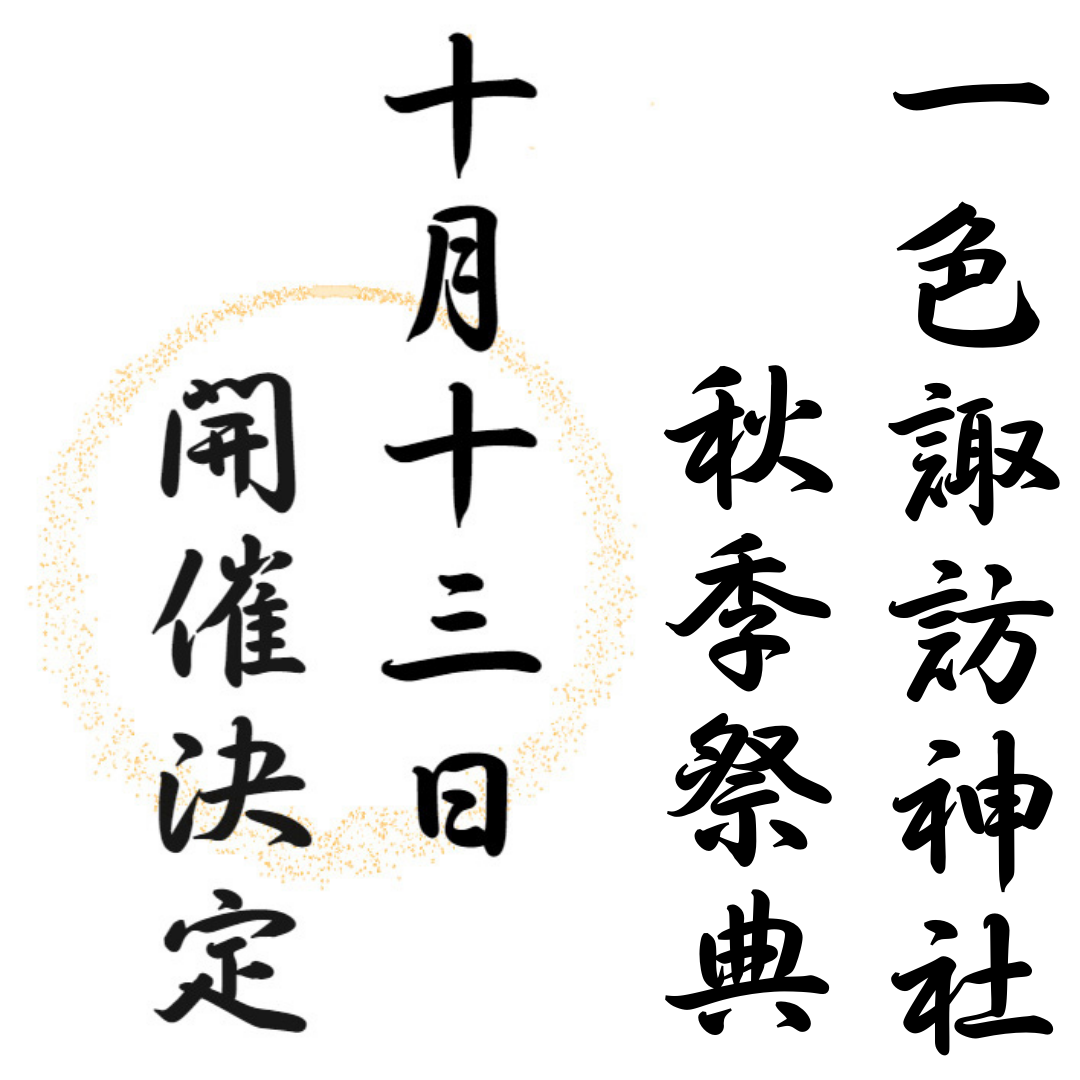 一色諏訪神社
秋季祭典
十月十三日
開催決定